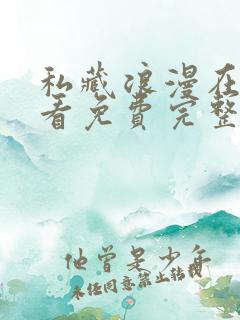 私藏浪漫在
看免費完整
他曾是少年
未经同意禁止转载